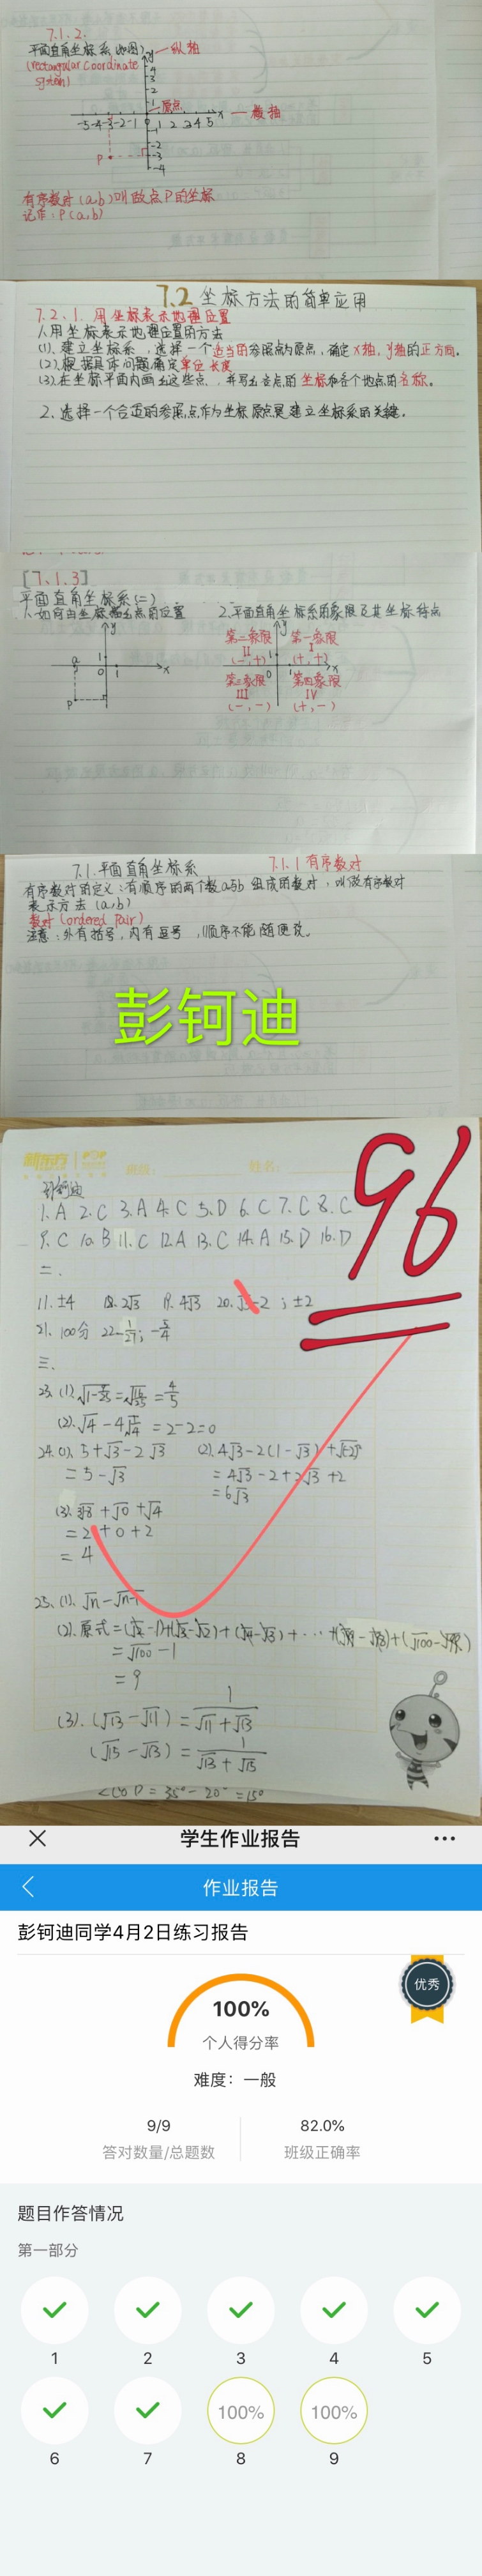 7.1.2.
平面直角坐标系(地图) y — 纵轴
(rectangular coordinate
system)
4
3
2
1 原点
-5 -4 -3 -2 -1 0 1 2 3 4 5 x — 横轴
-2
P -3
-4
有序数对(a,b)叫做点P的坐标
记作:P(a,b)
7.2 坐标方法的简单应用
7.2.1. 用坐标表示地理位置
1.用坐标表示地理位置的方法
(1).建立坐标系,选择一个适当的参照点为原点,确定x轴,y轴的正方向。
(2).根据具体问题确定单位长度
(3).在坐标平面内画出这些点,并写出各点的坐标和各个地点的名称。
2.选择一个合适的参照点作为坐标原点是建立坐标系的关键。
[7.1.3]
平面直角坐标系(二)
1.如何由坐标确定点的位置 2.平面直角坐标系的象限及其坐标特点
y
1
a 0 1 x
P
第二象限 y 第一象限
II 1 I
(-,+) (+,+)
0 1 x
第三象限 第四象限
III IV
(-,-) (+,-)
7.1.平面直角坐标系 7.1.1有序数对
有序数对的定义:有顺序的两个数a与b 组成的数对,叫做有序数对
表示方法(a,b)
数对(ordered pair)
注意:外有括号,内有逗号,顺序不能随便改。
彭钶迪
新东方 POP
班级: 姓名:
彭钶迪
96
1.A 2.C 3.A 4.C 5.D 6.C 7.C 8.C
9.C 10.B 11.C 12.A 13.C 14.A 15.D 16.D
二、
17.±4 18.2√3 19.4√3 20.√5-2 ; ±2
21.100分 22.-1/27; -5/4
三、
23.(1).√(1-9/25)=√(16/25)=4/5
(2).√4-4√(1/4)=2-2=0
24.(1).5+√3-2√3 (2).4√3-2(1-√3)+√(-2)²
=5-√3 =4√3-2+2√3+2
=6√3
(3).³√8+√0+√4
=2+0+2
=4
25.(1).√n-√(n-1)
(2).原式=(√2-1)+(√3-√2)+(√4-√3)+⋯+(√99-√98)+(√100-√99)
=√100-1
=9
(3).(√13-√11)=1/(√11+√13)
(√15-√13)=1/(√13+√15)
∠COD=35°-20°=15°
学生作业报告
作业报告
彭钶迪同学4月2日练习报告
优秀
100%
个人得分率
难度:一般
9/9 82.0%
答对数量/总题数 班级正确率
题目作答情况
第一部分
1 2 3 4 5
100% 100%
6 7 8 9